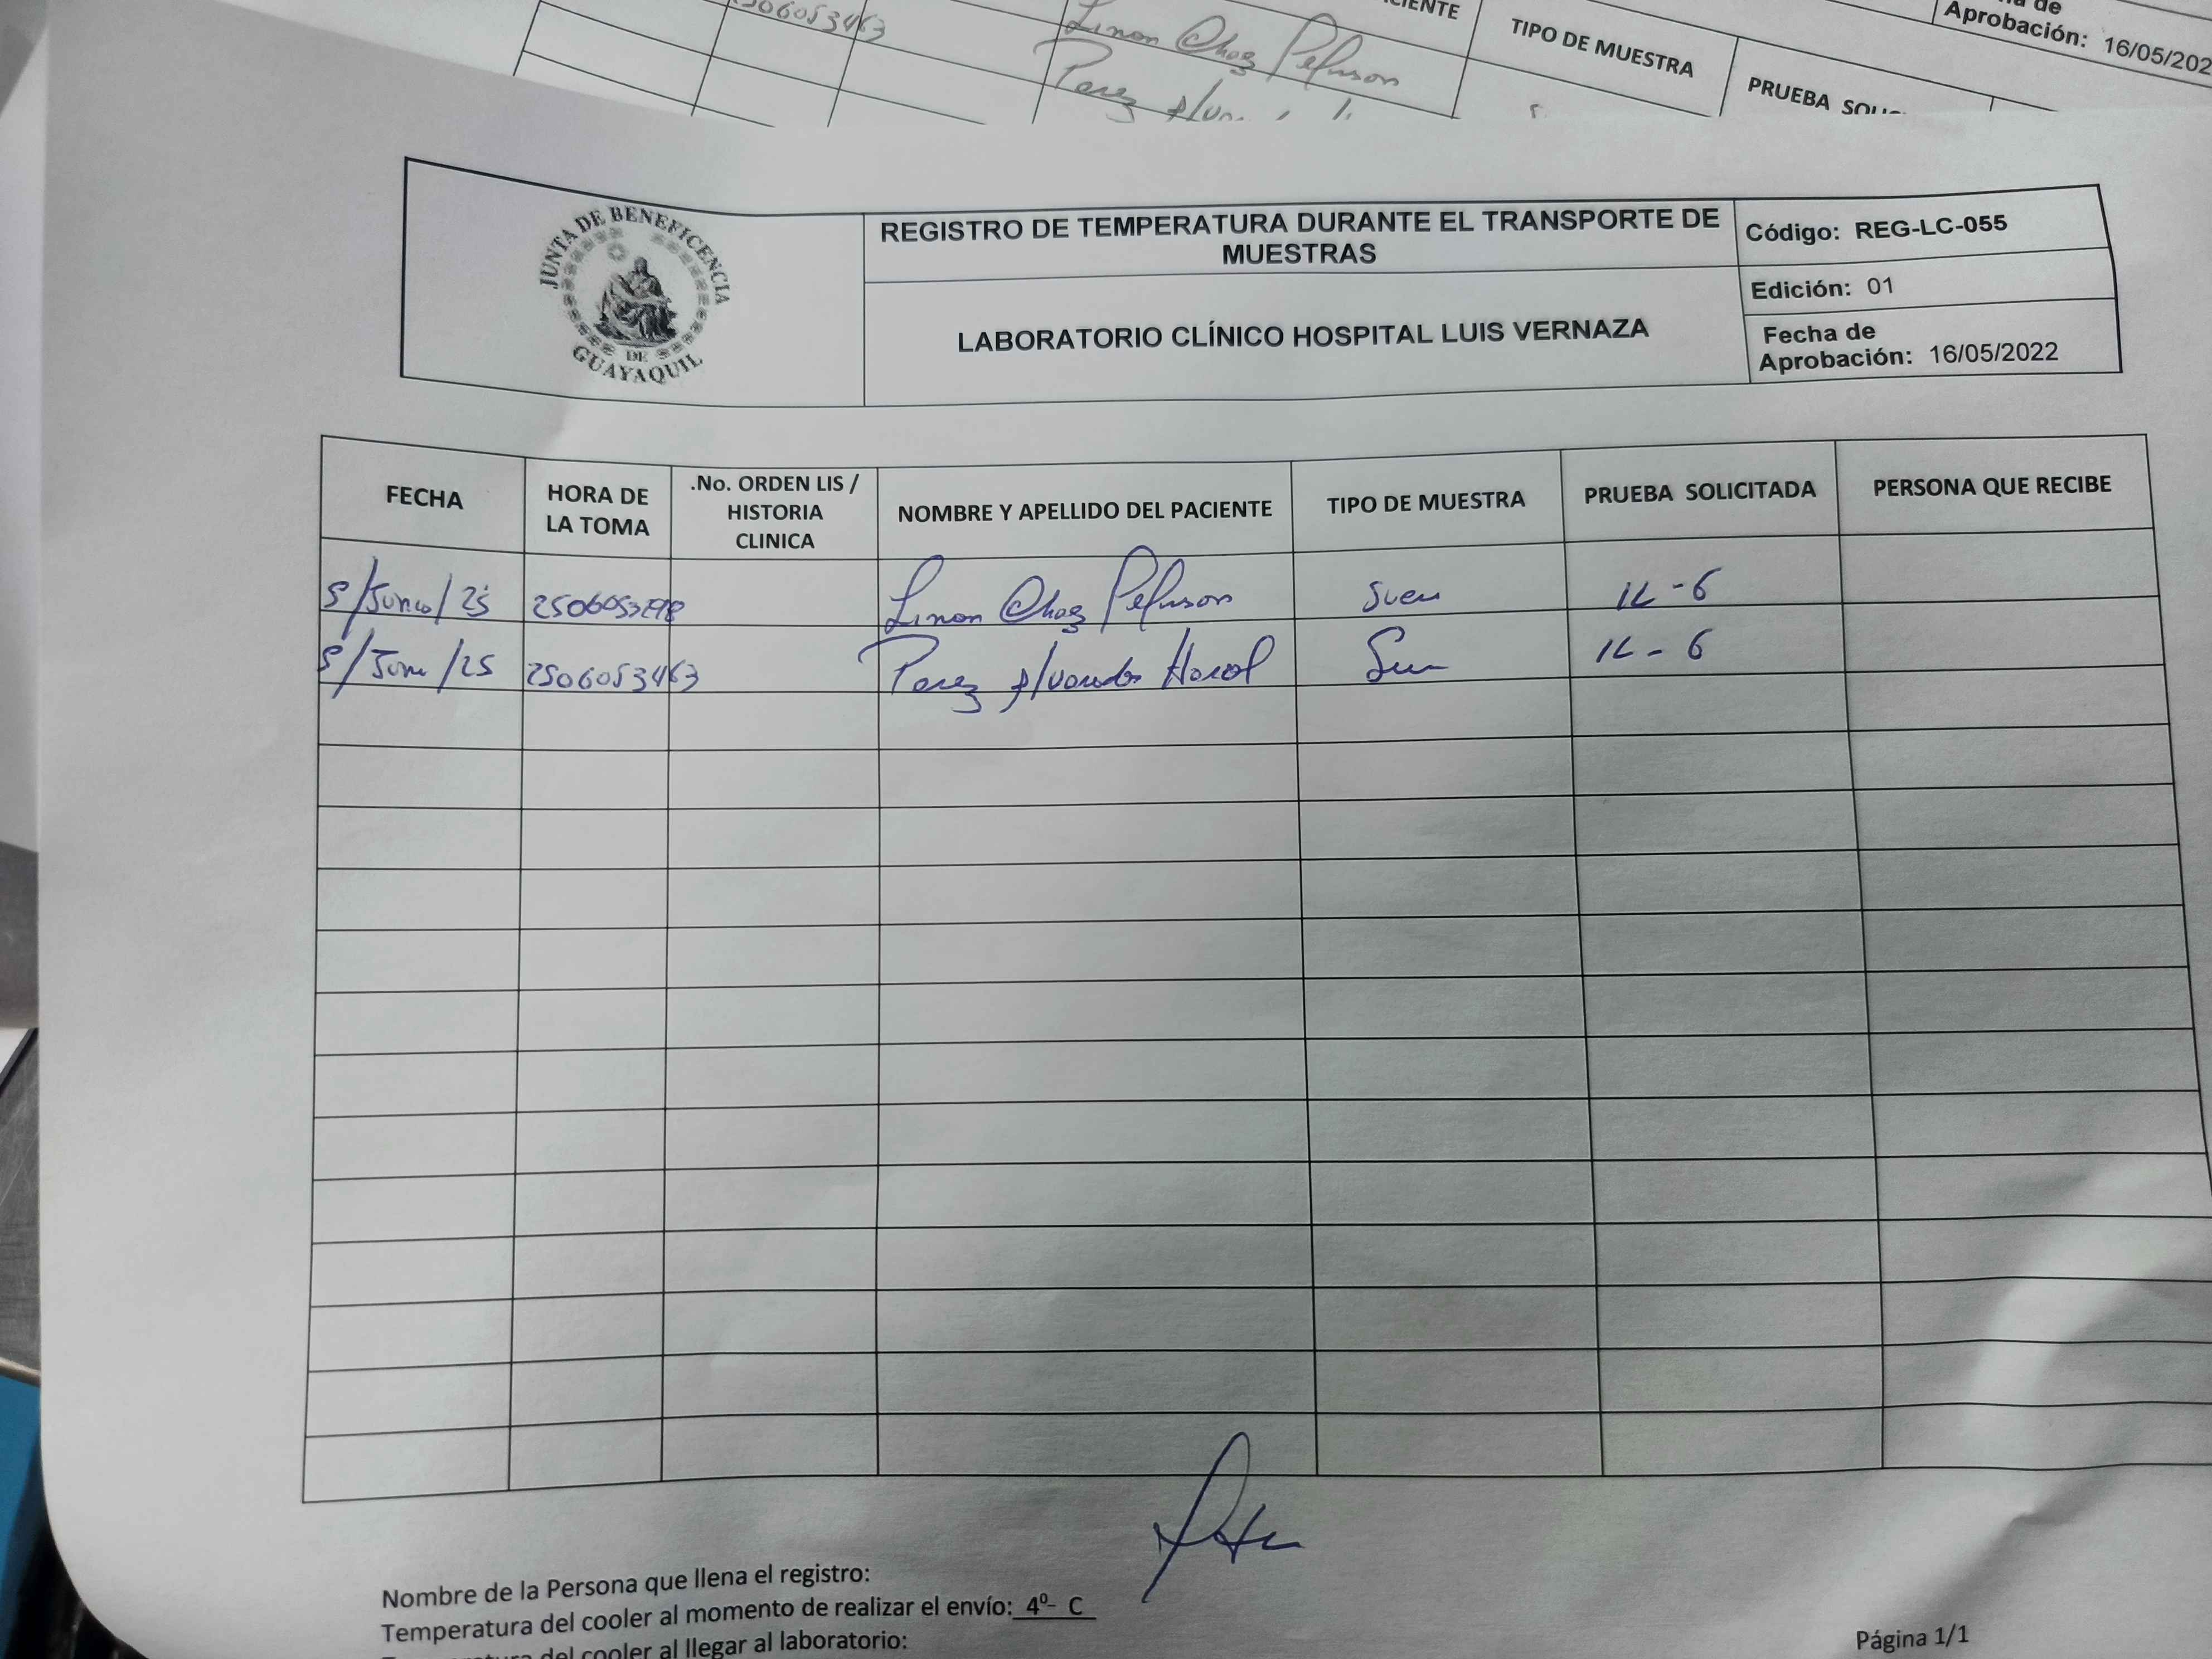 06053463
Linon Choez Pefinson
CIENTE
TIPO DE MUESTRA
PRUEBA
de
Aprobación: 16/05/202
Perez
JUNTA DE BENEFICENCIA
DE
GUAYAQUIL
REGISTRO DE TEMPERATURA DURANTE EL TRANSPORTE DE
MUESTRAS
LABORATORIO CLÍNICO HOSPITAL LUIS VERNAZA
Código: REG-LC-055
Edición: 01
Fecha de
Aprobación: 16/05/2022
FECHA
HORA DE
LA TOMA
.No. ORDEN LIS /
HISTORIA
CLINICA
NOMBRE Y APELLIDO DEL PACIENTE
TIPO DE MUESTRA
PRUEBA SOLICITADA
PERSONA QUE RECIBE
5/Junio/25 IL-6
5/Juni/25 2506053463 Perez Alvarado IL-6
Nombre de la Persona que llena el registro:
Temperatura del cooler al momento de realizar el envío: 4º- C
del cooler al llegar al laboratorio:
Página 1/1